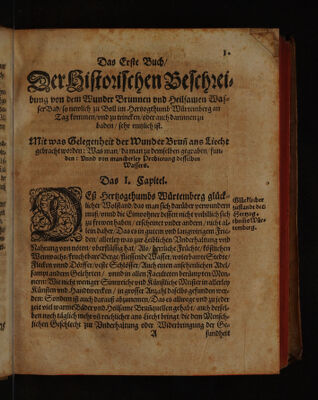 1.
Das Erste Buch/
Der Historischen Beschrei-
bung von dem Wunder Brunnen vnd Heilsamen Was-
ser Bad/ so newlich zu Boll im Hertzogthumb Würtemberg an
Tag kommen/ vnd zu trincken/ oder auch darinnen zu
baden/ sehr nutzlich ist.
Mit was Gelegenheit der Wunder Brunn ans Liecht
gebracht worden: Was man/ da man zu demselben gegraben/ fun-
den: Vnnd von mancherley Probierung desselben
Wassers.
Das I. Capitel.
DEß Hertzogthumbs Würtemberg glück-
licher Wolstand/ das man sich darüber verwundern
muß/ vnnd die Einwohner dessen nicht vnbillich sich
zu frewen haben/ erscheinet vnder andern/ nicht al-
lein daher/ Das es in gutem vnd langwirigem Frie-
den/ allerley was zur Leiblichen Vnderhaltung vnd
Nahrung von nöten/ vberflüssig hat: Als/ herrliche Früchte/ köstlichen
Weinwachs/ fruchtbare Berge/ fliessende Wasser/ Städte/
Flecken vnnd Dörffer/ veste Schlösser/ Auch einen ansehenlichen Adel/
sampt andern Gelehrten/ vnnd in allen Faculteten berümpten Men-
nern: Wie nicht weniger Sinnreiche vnd Künstliche Meister in allerley
Künsten vnd Handtwercken/ in grosser Anzahl daselbs gefunden wer-
den: Sondern ist auch darauß abzunemen/ Das es allwege vnd zu jeder-
zeit viel warme Bäder vnd Heilsame Brunquellen gehabt/ auch dersel-
ben noch täglich mehr vnd reichlicher ans Liecht bringt/ die dem Mensch-
lichen Geschlecht zur Vnderhaltung oder Widerbringung der Ge-
A
sundheit
Glückseliger
zustandt deß
Hertzog-
thumbs Wür-
temberg.